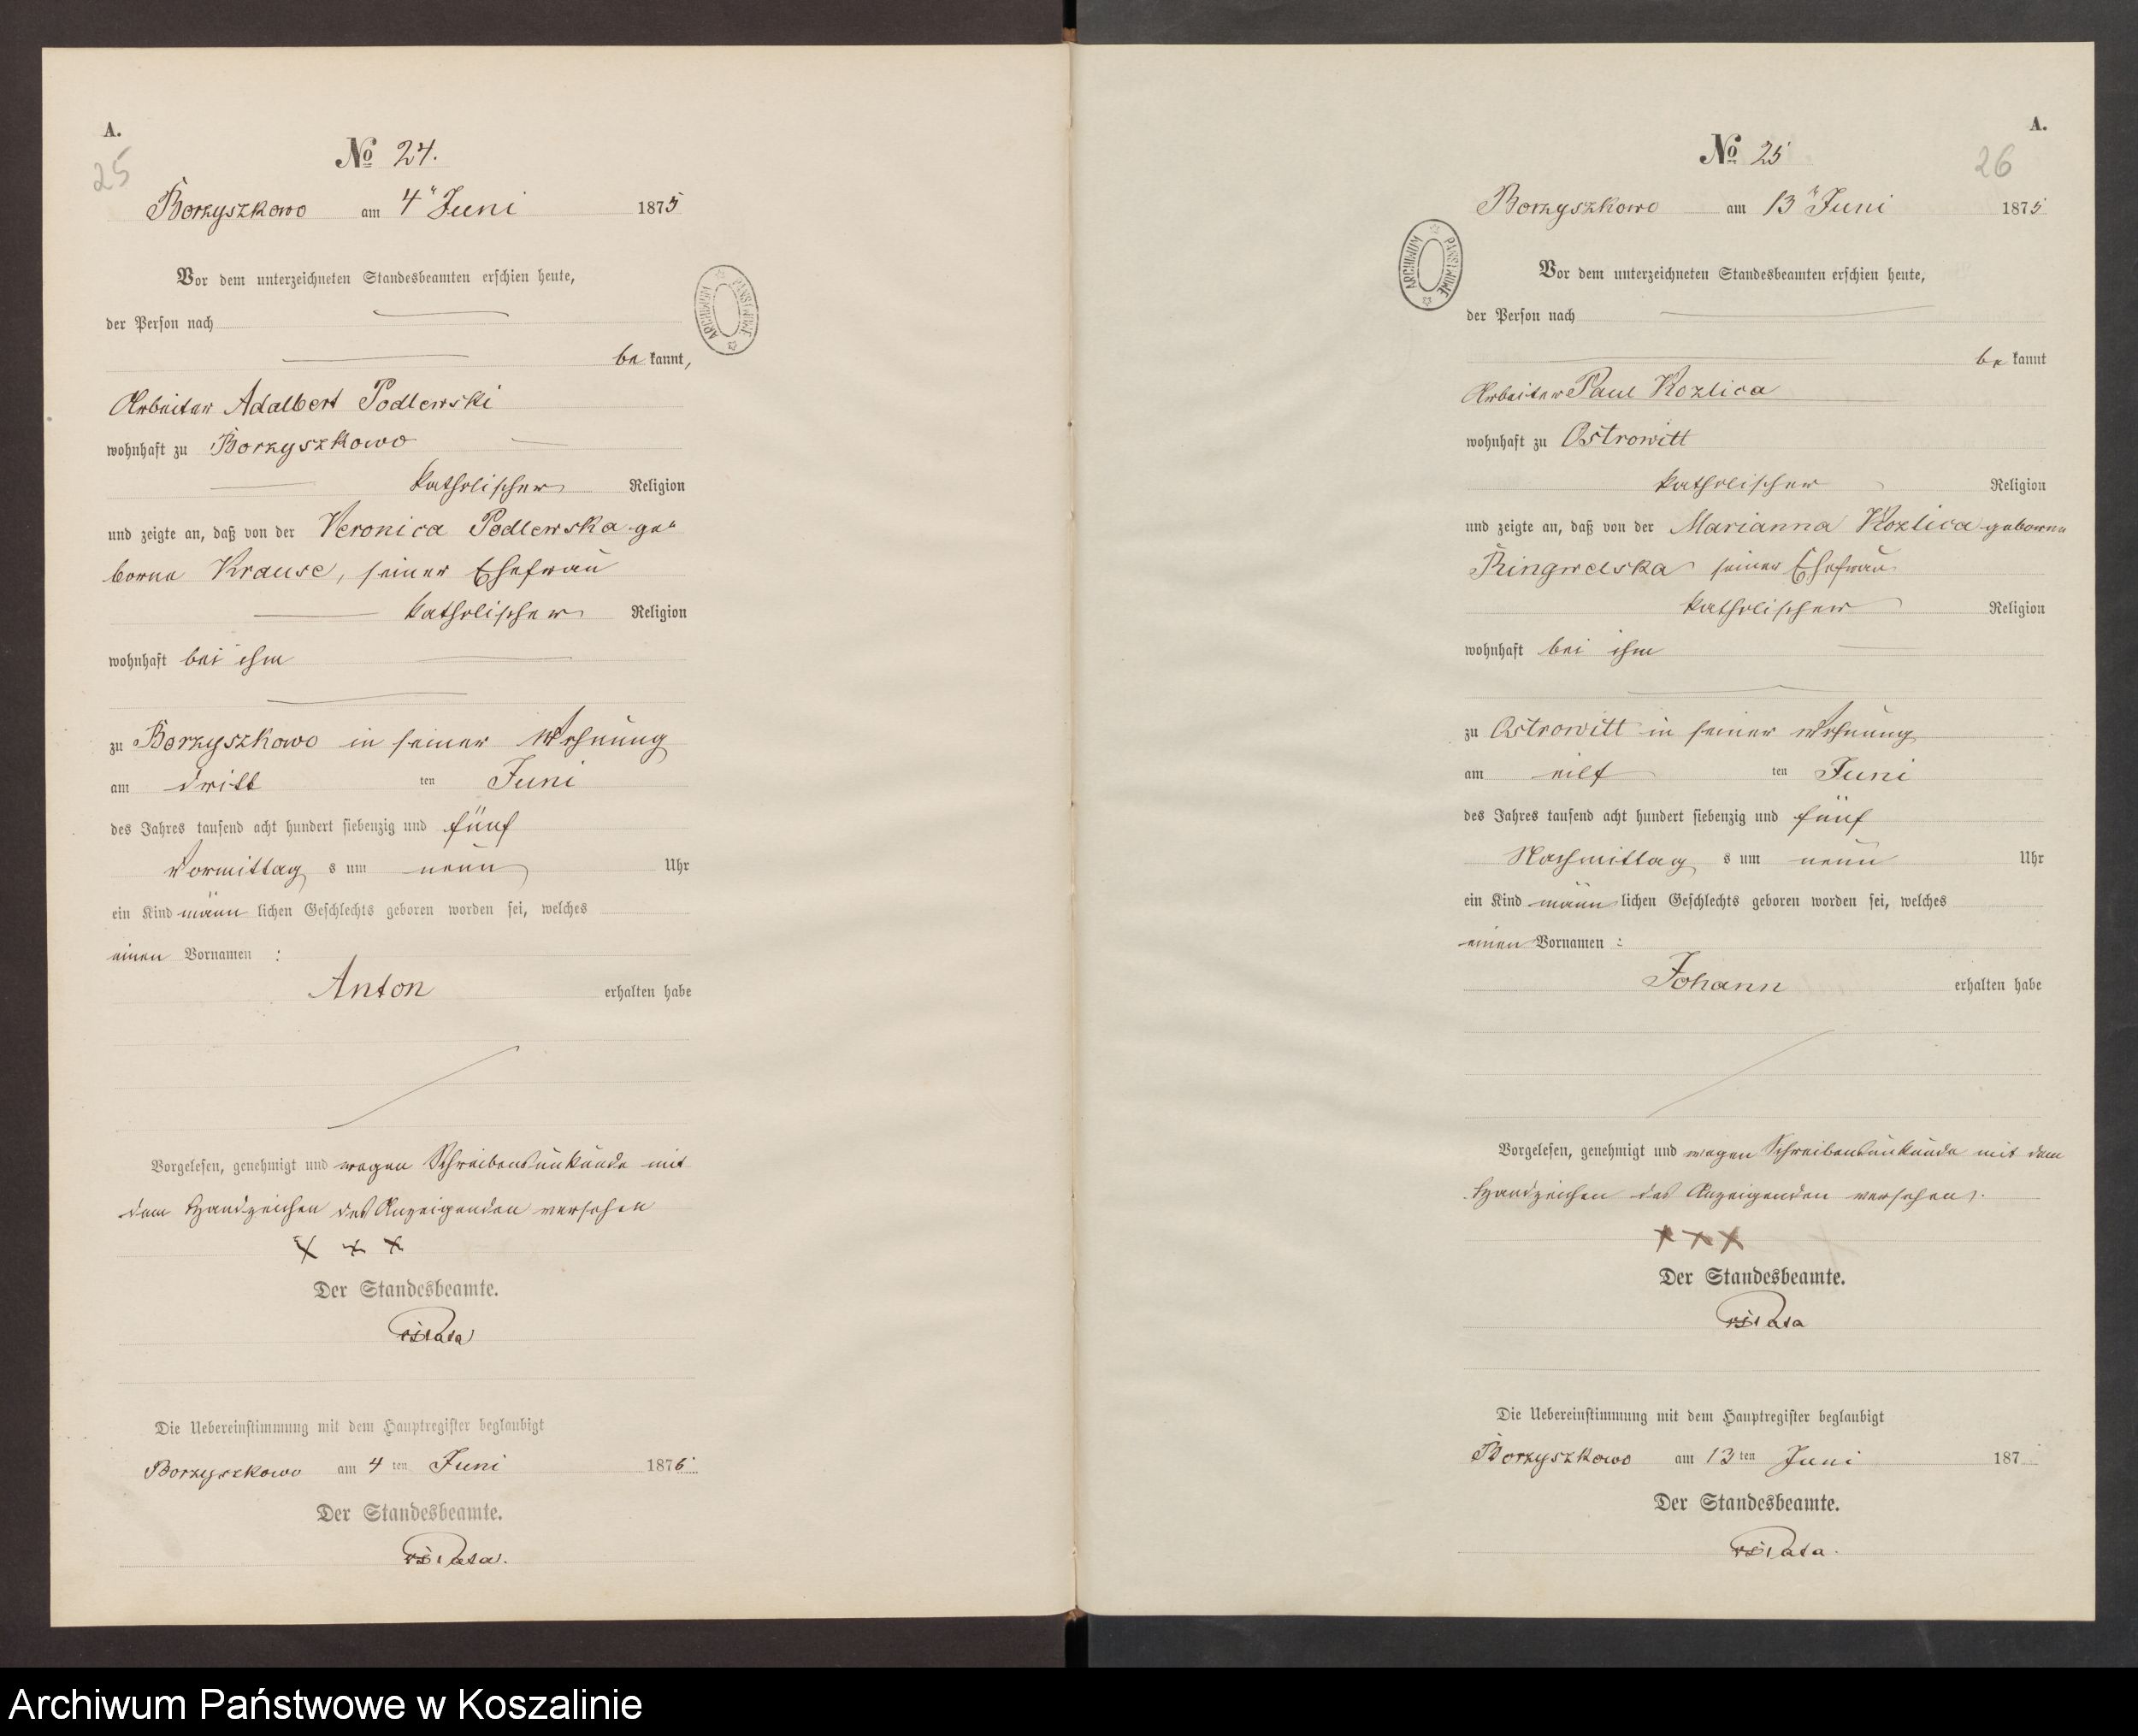 A.
25
No 24.
Borzyszkowo am 4" Juni 1875
Vor dem unterzeichneten Standesbeamten erschien heute,
der Person nach
be kannt,
Arbeiter Adalbert Podlewski
wohnhaft zu Borzyszkowo
katholischer Religion
und zeigte an, daß von der Veronica Podlewska ge"
borne Krause, seiner Ehefrau
katholischer Religion
wohnhaft bei ihm
zu Borzyszkowo in seiner Wohnung
am dritt ten Juni
des Jahres tausend acht hundert siebenzig und fünf
Vormittag s um neun Uhr
ein Kind männ lichen Geschlechts geboren worden sei, welches
einen Vornamen :
Anton erhalten habe
Vorgelesen, genehmigt und wegen Schreibensunkunde mit
dem Handzeichen des Anzeigenden versehen
x x x
Der Standesbeamte.
Die Uebereinstimmung mit dem Hauptregister beglaubigt
Borzyszkowo am 4 ten Juni 1876
Der Standesbeamte.
ARCHIWUM PAŃSTWOWE
A.
26
No 25
Borzyszkowo am 13" Juni 1875
Vor dem unterzeichneten Standesbeamten erschien heute,
der Person nach
be kannt
Arbeiter Paul Kozlica
wohnhaft zu Ostrowitt
katholischer Religion
und zeigte an, daß von der Marianna Kozlica geborne
Ringwelska seiner Ehefrau
katholischer Religion
wohnhaft bei ihm
zu Ostrowitt in seiner Wohnung
am eilf ten Juni
des Jahres tausend acht hundert siebenzig und fünf
Nachmittag s um neun Uhr
ein Kind männ lichen Geschlechts geboren worden sei, welches
einen Vornamen :
Johann erhalten habe
Vorgelesen, genehmigt und wegen Schreibensunkunde mit dem
Handzeichen des Anzeigenden versehen.
x x x
Der Standesbeamte.
Die Uebereinstimmung mit dem Hauptregister beglaubigt
Borzyszkowo am 13 ten Juni 187
Der Standesbeamte.
ARCHIWUM PAŃSTWOWE
Archiwum Państwowe w Koszalinie